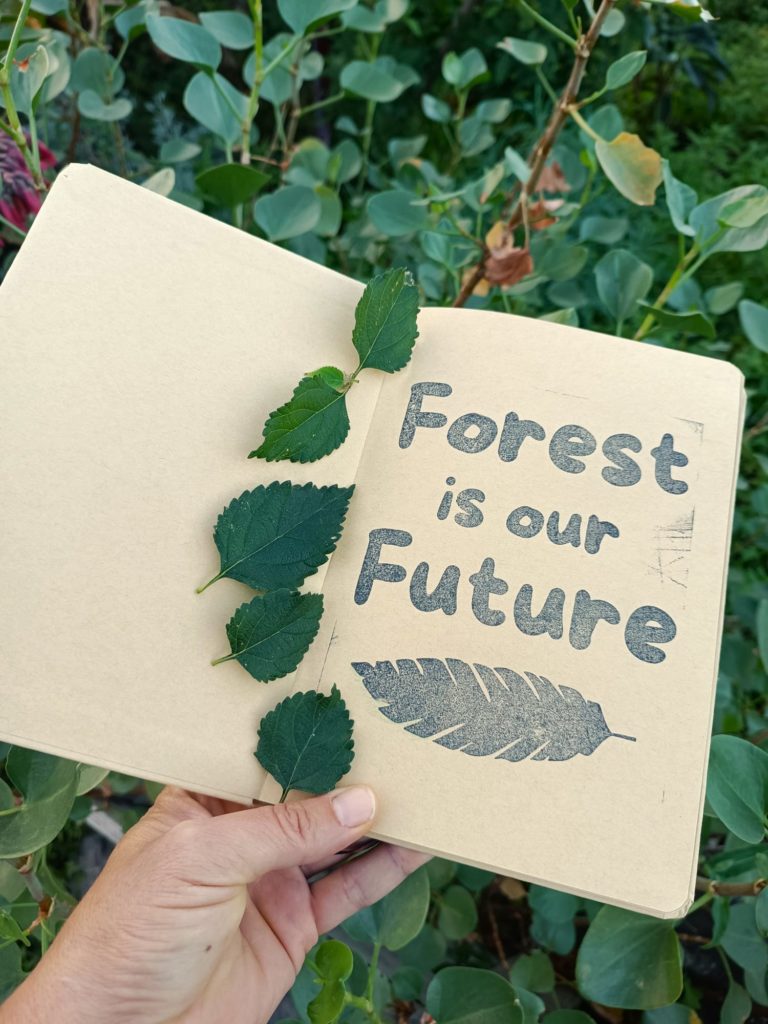 Forest
is our
Future